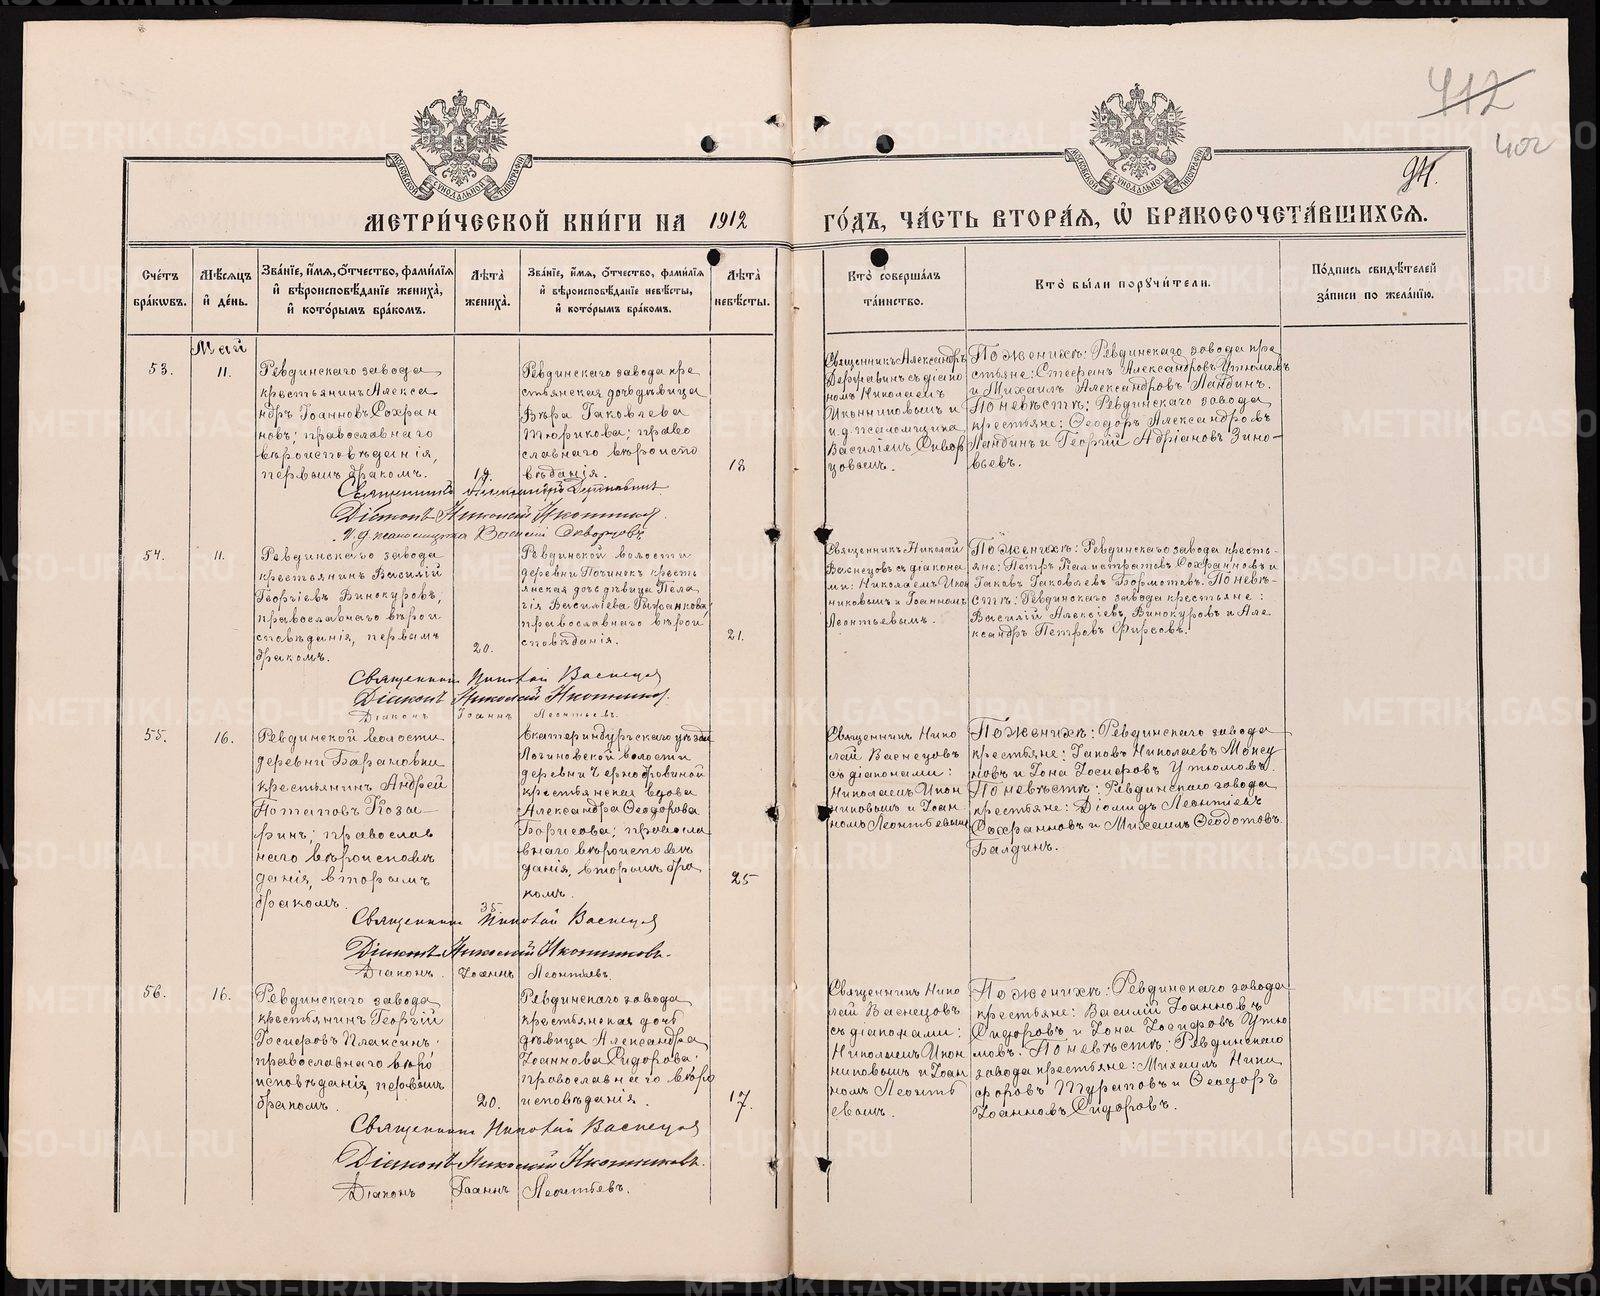 412
402
94.
МОСКОВСКОЙ СѴНОДАЛЬНОЙ ТИПОГРАФІИ
МОСКОВСКОЙ СѴНОДАЛЬНОЙ ТИПОГРАФІИ
МЕТРИ́ЧЕСКОЙ КНИ́ГИ НА 1912
ГО́ДЪ, ЧА́СТЬ ВТОРА́Я, Ѡ҆ БРАКОСОЧЕТА́ВШИХСЯ.
Сче́тъ бра́кѡвъ.
Мѣ́сяцъ и҆ де́нь.
Зва́нїе, и҆́мя, ѻ҆́тчество, фами́лїя и҆ вѣроисповѣ́данїе жениха̀, и҆ кото́рымъ бра́комъ.
Лѣ́та жениха̀.
Зва́нїе, и҆́мя, ѻ҆́тчество, фами́лїя и҆ вѣроисповѣ́данїе невѣ́сты, и҆ кото́рымъ бра́комъ.
Лѣ́та невѣ́сты.
Кто̀ соверша́лъ та́инство.
Кто̀ бы́ли порꙋчи́тели.
По́дпись свидѣ́телей за́писи по жела́нїю.
Май
53.
11.
Ревдинскаго завода
крестьянинъ Алекса
ндръ Іоанновъ Сохран
новъ; православнаго
вѣроисповѣданія,
первымъ бракомъ.
19.
Ревдинскаго завода кре
стьянская дочь дѣвица
Вѣра Іаковлева
Тюрикова; право
славнаго вѣроиспо
вѣданія.
18
Священникъ Александръ
Державинъ съ діако
номъ Николаемъ
Иконниковымъ и
и.д. псаломщика
Василіемъ Сквор
цовымъ.
По женихѣ: Ревдинскаго завода кре
стьяне: Стефанъ Александровъ Утюмовъ
и Михаилъ Александровъ Ландинъ.
По невѣстѣ: Ревдинскаго завода
крестьяне: Ѳеодоръ Александровъ
Ландинъ и Георгій Адріановъ Зино-
вьевъ.
Священникъ Александръ Державинъ
Діаконъ Николай Иконников.
И.д. псаломщика Василій Скворцовъ
54.
11.
Ревдинскаго завода
крестьянинъ Василій
Георгіевъ Винокуровъ,
православнаго вѣрои
сповѣданія, первымъ
бракомъ.
20.
Ревдинской волости
деревни Починокъ кресть
янская дочь дѣвица Пела
гія Василіева Рыжанкова
православнаго вѣрои
сповѣданія.
21.
Священникъ Николай
Васнецовъ съ діакона
ми: Николаемъ Икон
никовымъ и Іоанномъ
Леонтьевымъ.
По женихѣ: Ревдинскаго завода кресть-
яне: Петръ Калистратовъ Сохранновъ и
Іаковъ Іаковлевъ Бормотовъ. По невѣ-
стѣ: Ревдинскаго завода крестьяне:
Василій Алексіевъ Винокуровъ и Але-
ксандръ Петровъ Фирсовъ.
Священник Николай Васнецов
Діаконъ Николай Иконников.
Діаконъ Іоаннъ Леонтьевъ.
55.
16.
Ревдинской волости
деревни Барановки
крестьянинъ Андрей
Потаповъ Коза-
ринъ; православ
наго вѣроисповѣ
данія, вторымъ
бракомъ.
35
Екатеринбургскаго уѣзда
Логиновской волости
деревни Чернобровиной
крестьянская вдова
Александра Ѳеодорова
Борисова; правосла
внаго вѣроисповѣ
данія, вторымъ бра
комъ.
25
Священникъ Нико
лай Васнецовъ
съ діаконами:
Николаемъ Икон
никовымъ и Іоан
номъ Леонтьевымъ
По женихѣ: Ревдинскаго завода
крестьяне: Іаковъ Николаевъ Мокеу
новъ и Іона Іосифовъ Утюмовъ.
По невѣстѣ: Ревдинскаго завода
крестьяне: Діомидъ Леонтіевъ
Сохранновъ и Михаилъ Ѳеодотовъ
Балдинъ.
Священник Николай Васнецов
Діаконъ Николай Иконниковъ.
Діаконъ Іоаннъ Леонтьевъ
56.
16.
Ревдинскаго завода
крестьянинъ Георгій
Іосифовъ Плаксинъ;
православнаго вѣро
исповѣданія, первымъ
бракомъ.
20.
Ревдинскаго завода
крестьянская дочь
дѣвица Александра
Іоаннова Сидорова;
православнаго вѣро
исповѣданія.
17.
Священникъ Нико
лай Васнецовъ
съ діаконами:
Николаемъ Икон
никовымъ и Іоан
номъ Леонть
евымъ.
По женихѣ: Ревдинскаго завода
крестьяне: Василій Іоанновъ
Сидоровъ и Іона Іосифовъ Утю
мовъ. По невѣстѣ: Ревдинскаго
завода крестьяне: Михаилъ Ники
форовъ Туратовъ и Ѳеодоръ
Іоанновъ Сидоровъ.
Священник Николай Васнецов
Діаконъ Николай Иконниковъ.
Діаконъ Іоаннъ Леонтьевъ.
METRIKI.GASO-URAL.RU